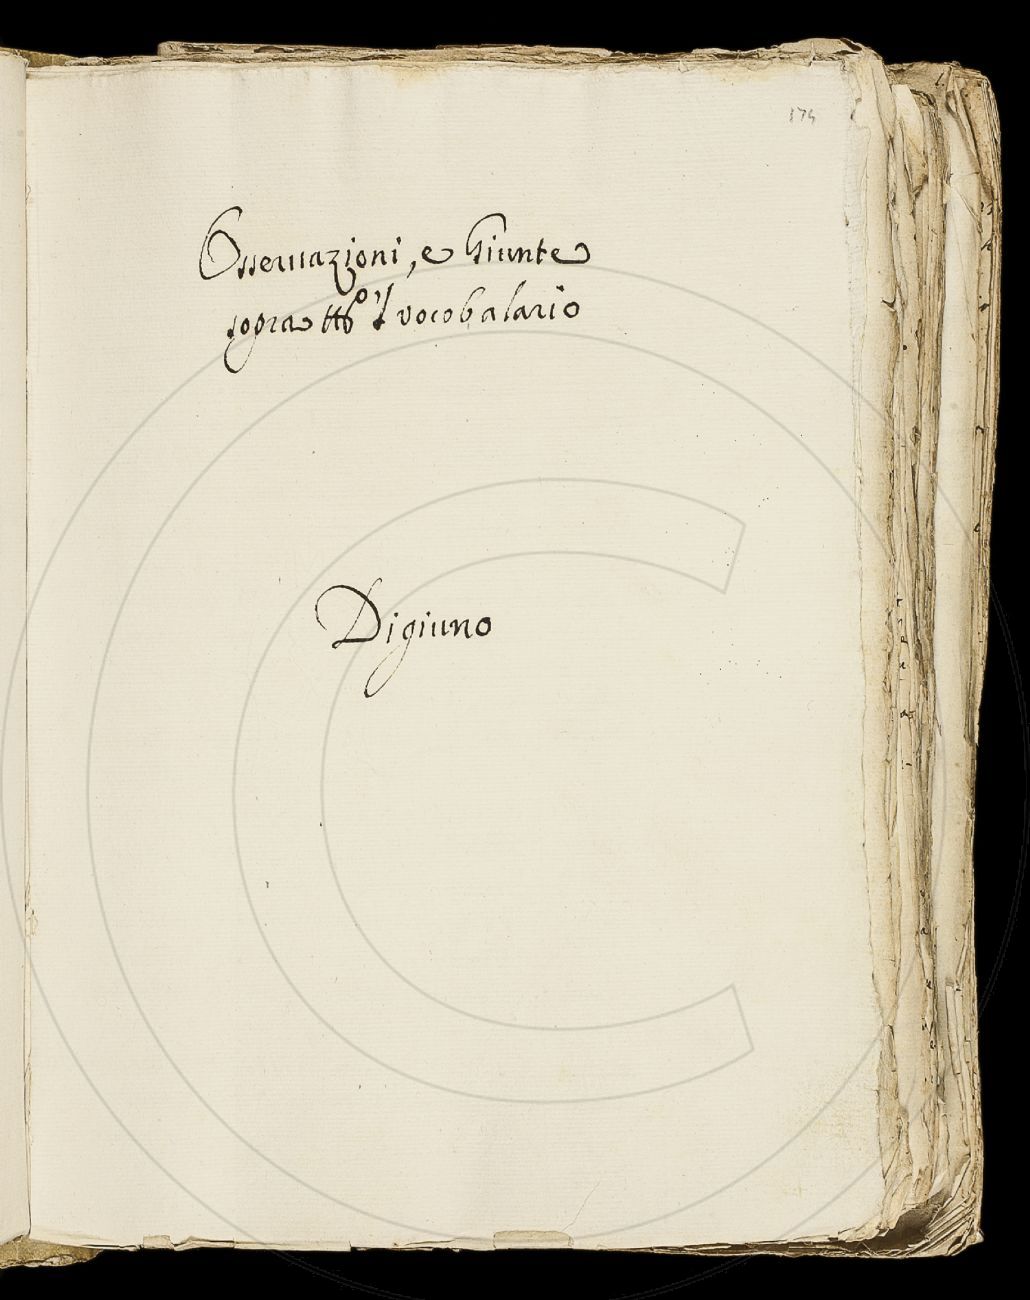 174
Osseruazioni, e Giunte
sopra tt.º 'l vocobalario
Digiuno